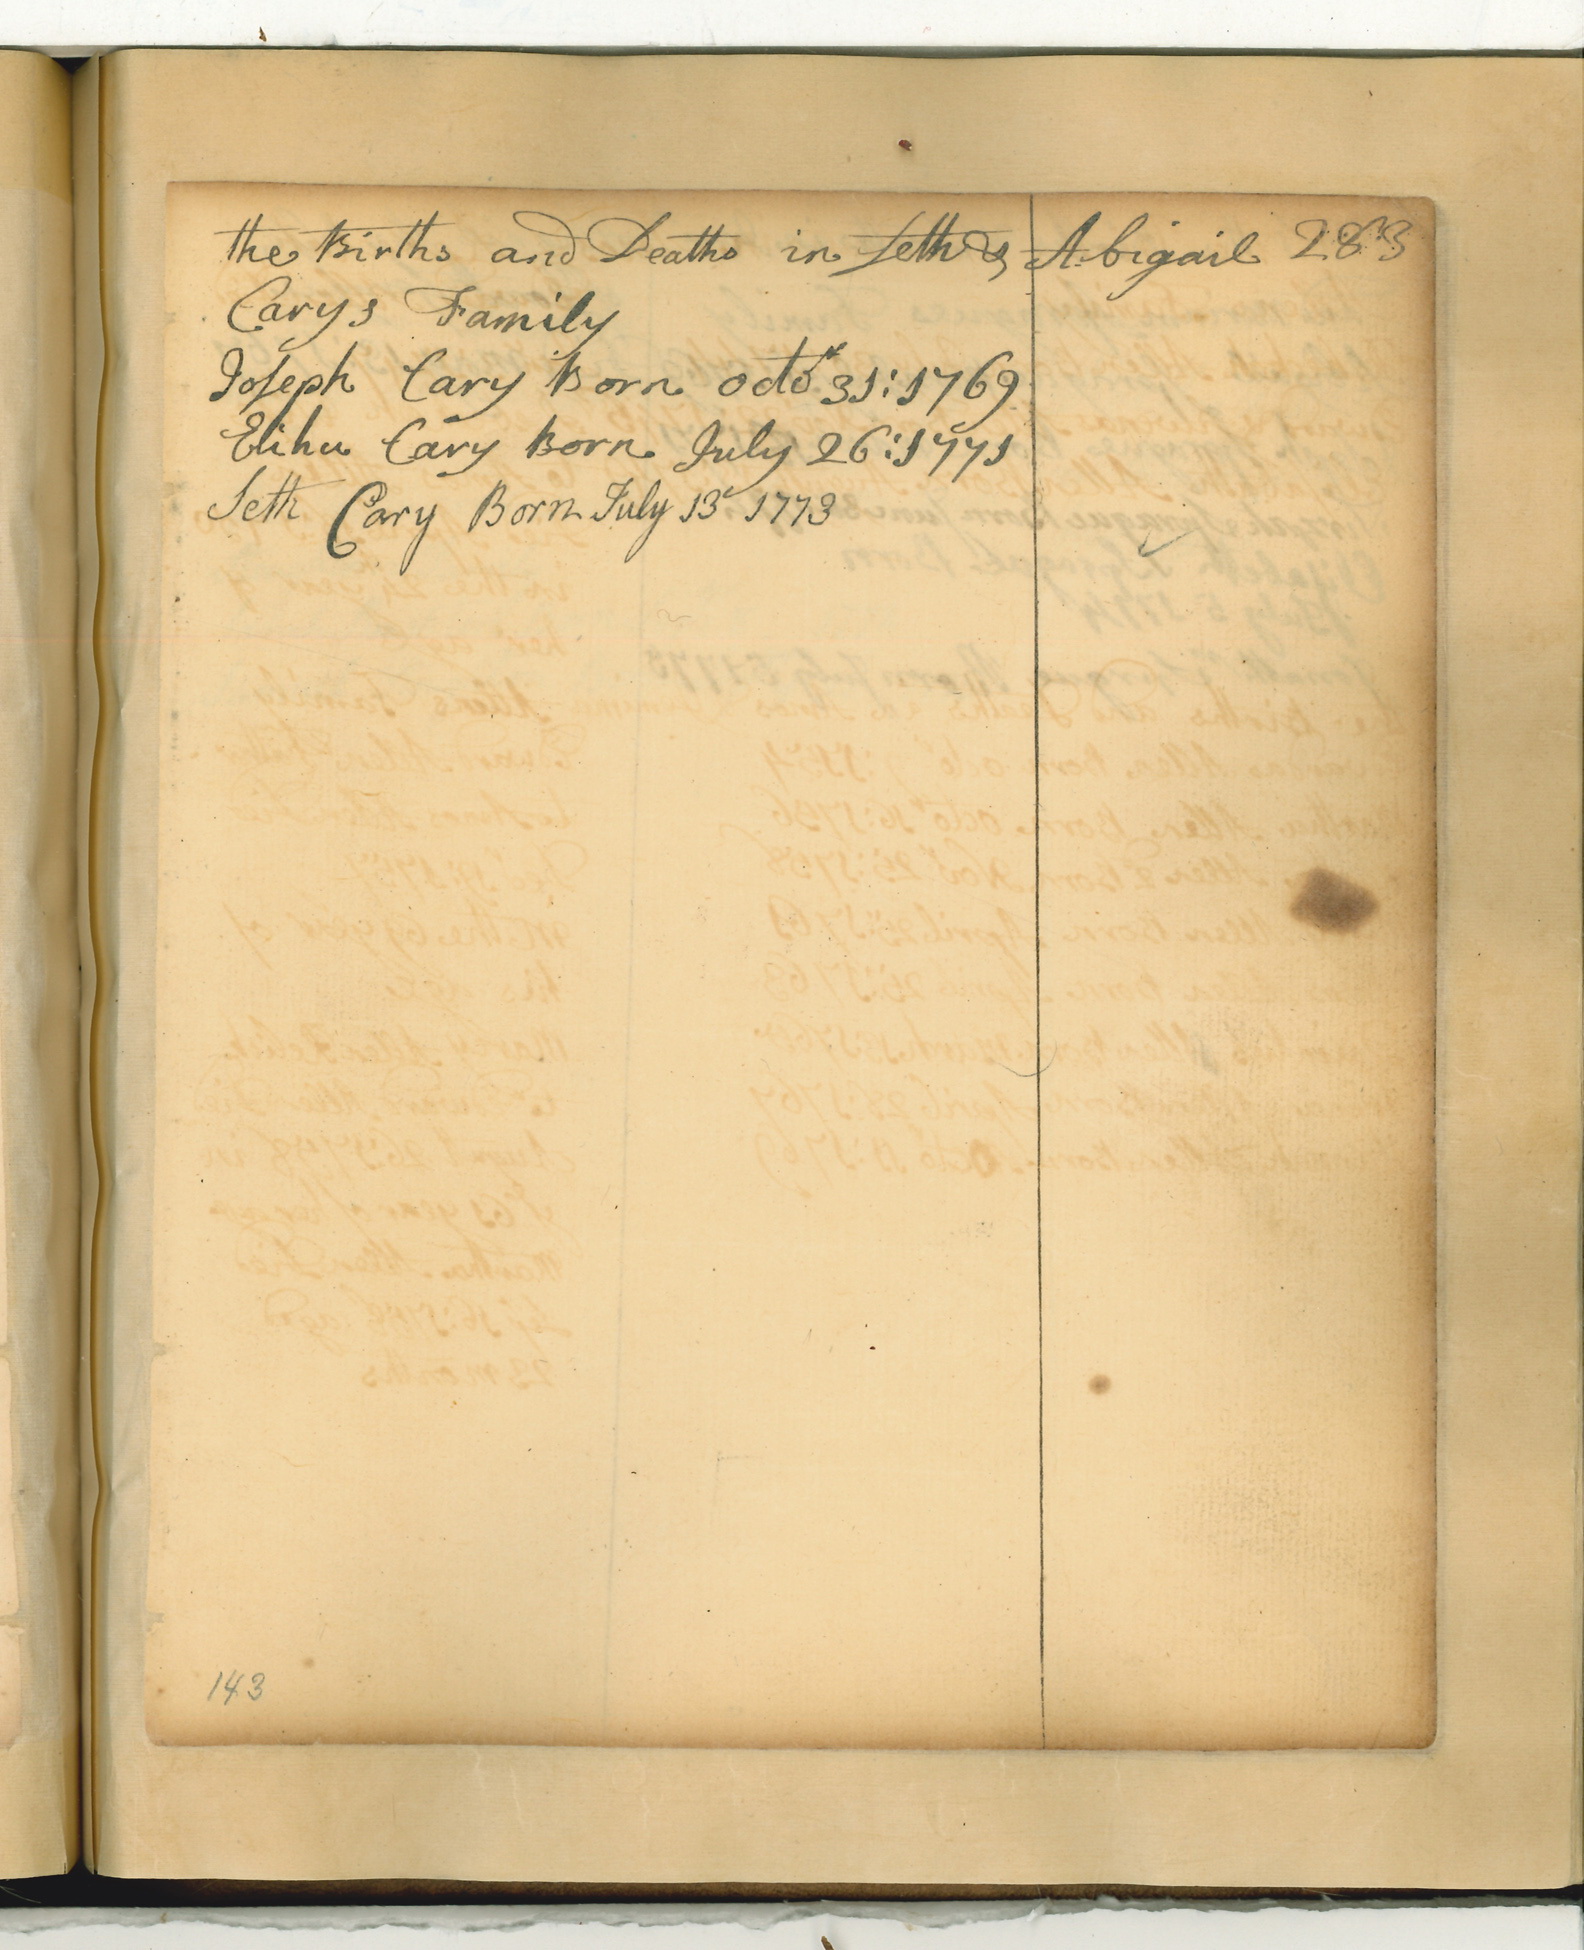 the Births and Deaths in Seth & Abigail 283
Carys Family
Joseph Cary Born octor 31:1769
Elihu Cary Born July 26:1771
Seth Cary Born July 13 1773
143